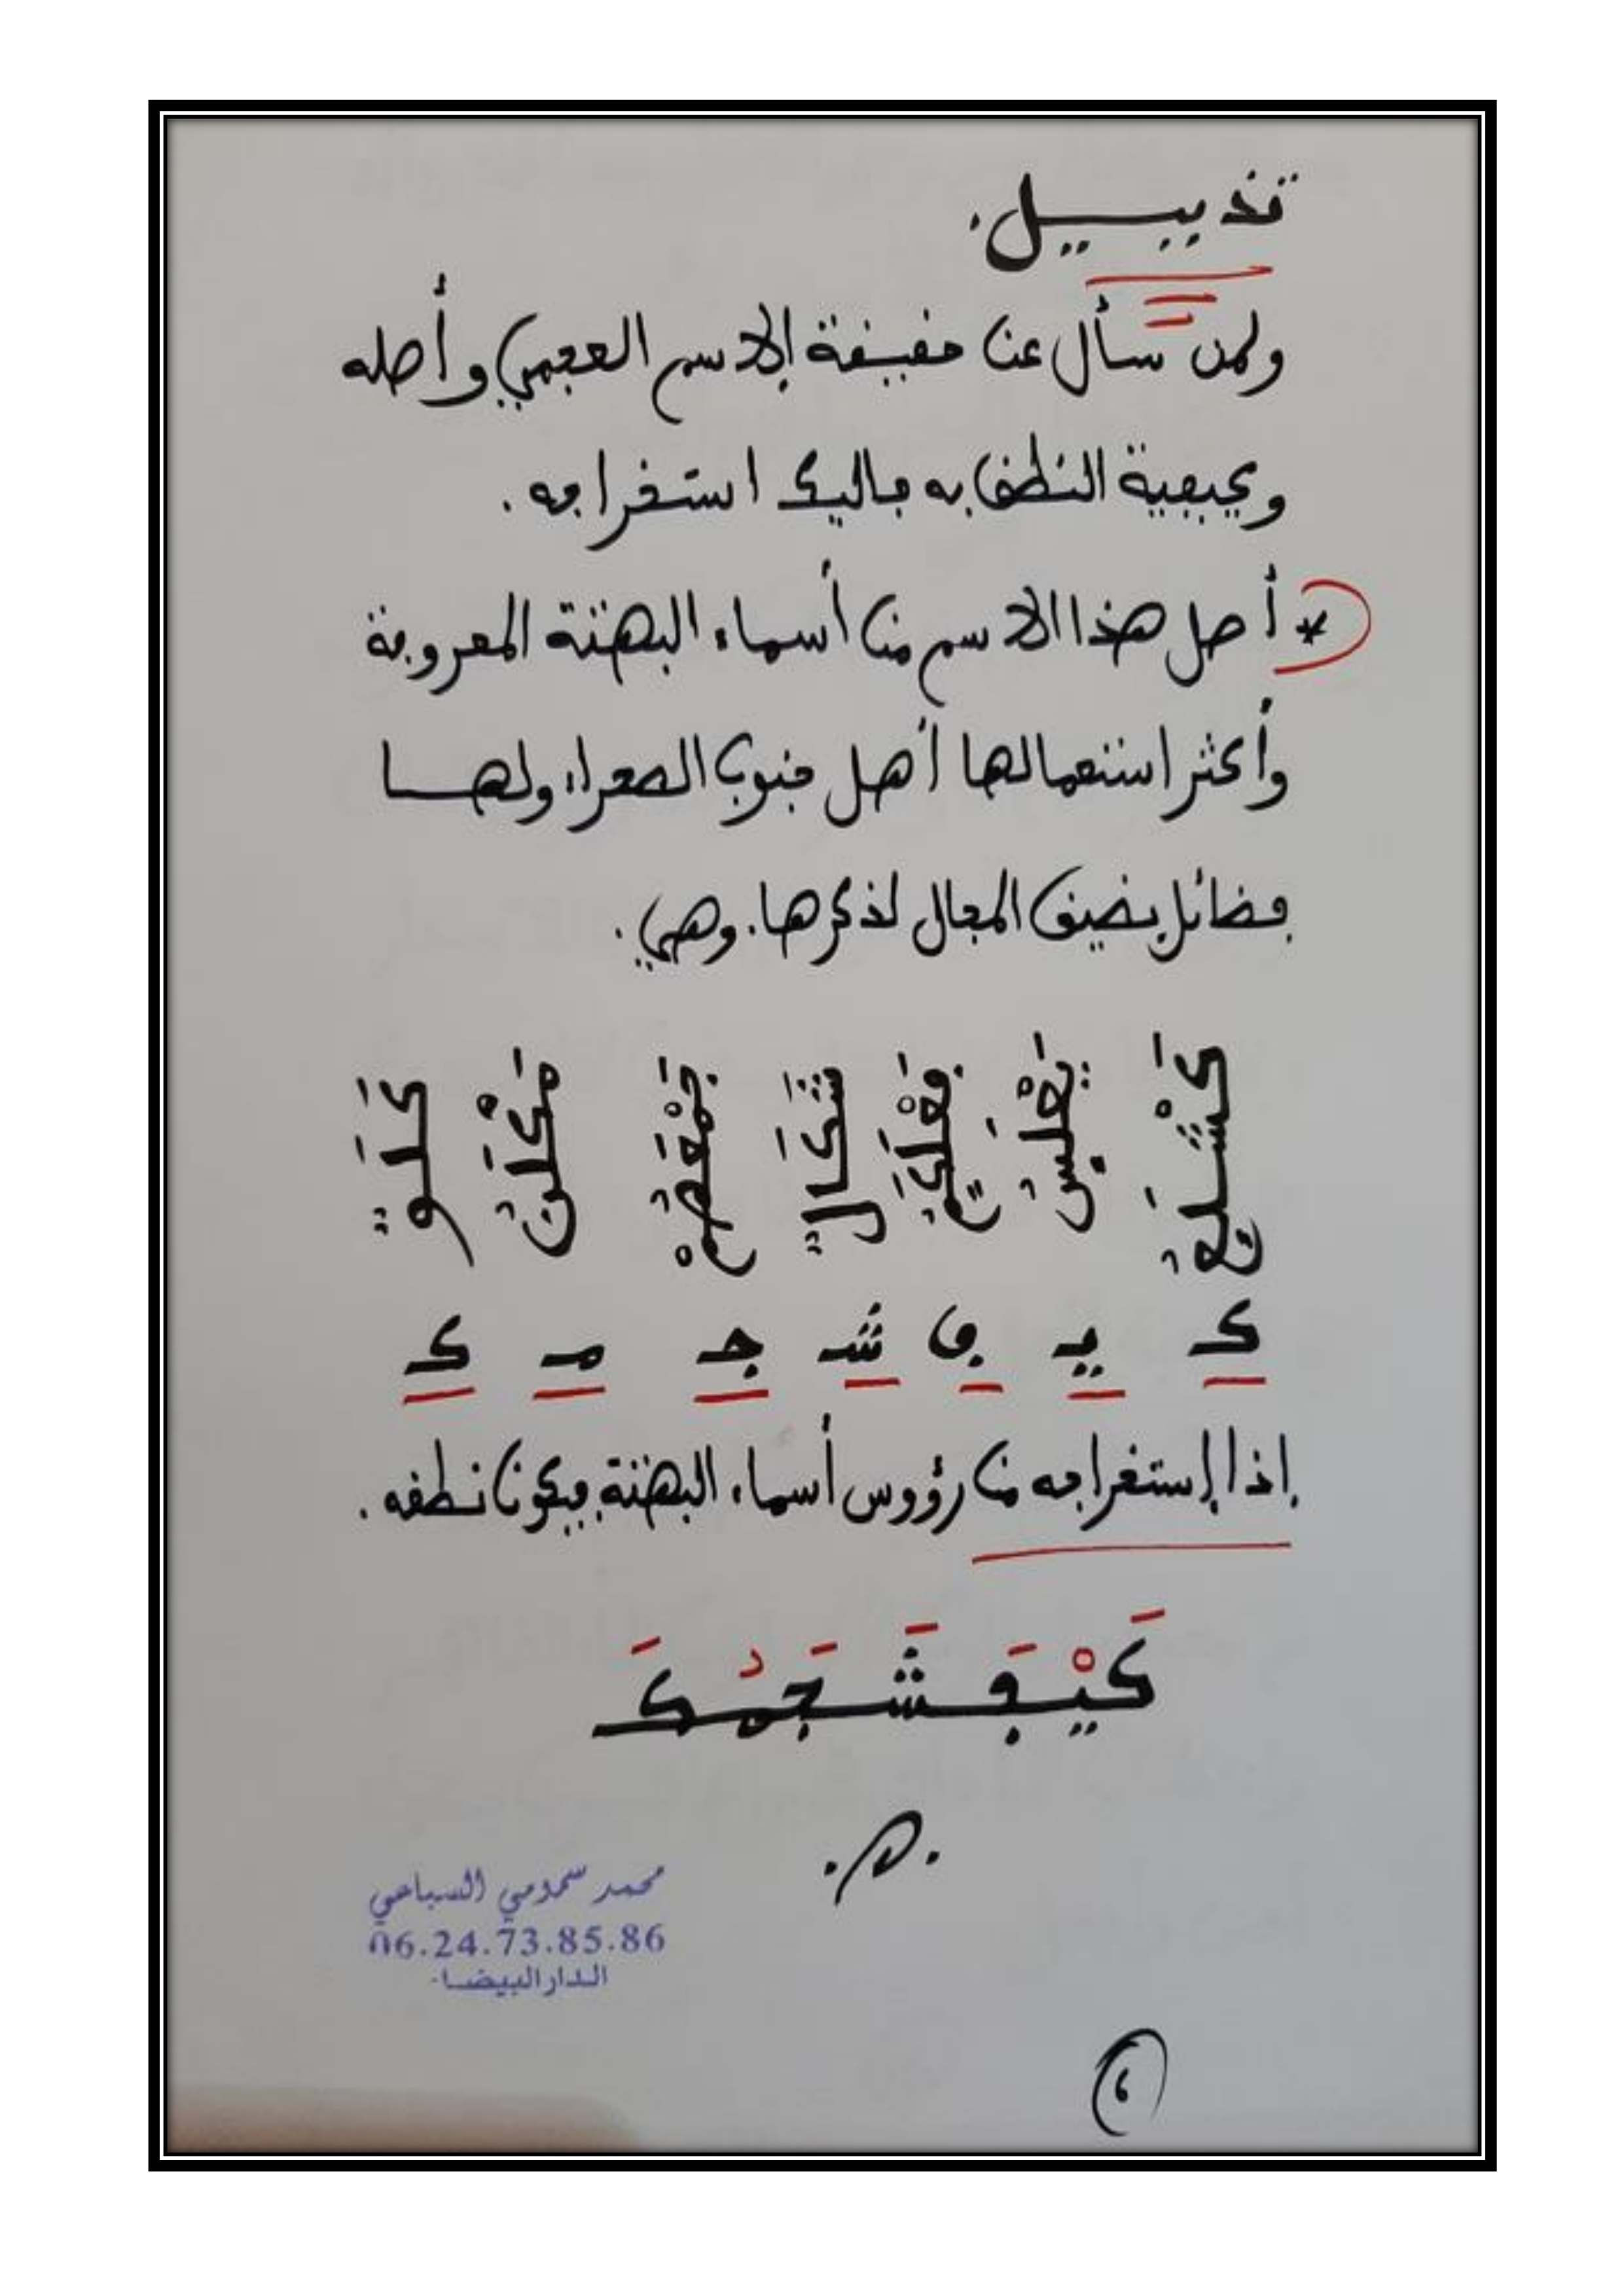 تذييل.
ولمن سأل عن حقيقة الإسم العجمي وأصله
وكيفية النطق به فاليك استخراجه.
* أصل هذا الاسم من أسماء البهتتة المعروفة
وأكثر استعمالها أهل جنوب الصحراء ولهــا
فضائل يضيق المجال لذكرها. وهي.
ك يـ ف شـ جـ مـ ك
إذا إستخراجه من رؤوس أسماء البهتتة فيكون نطقه.
كَيْفَشَجَمُكَ
محمد سمومي السباعي
06.24.73.85.86
الدار البيضـا
6